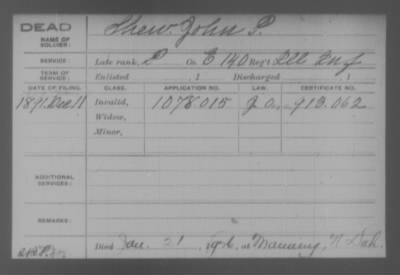 DEAD
NAME OF SOLDIER:
Shew. John P.
SERVICE:
Late rank, P Co. E 140 Reg't Ill Inf
TERM OF SERVICE:
Enlisted , 1 Discharged , 1
DATE OF FILING. CLASS. APPLICATION NO. LAW. CERTIFICATE NO.
1891. Dec 11 Invalid, 1078.015 913.062
Widow,
Minor,
ADDITIONAL SERVICES:
REMARKS:
Died Jan. 21 , at N Dak.